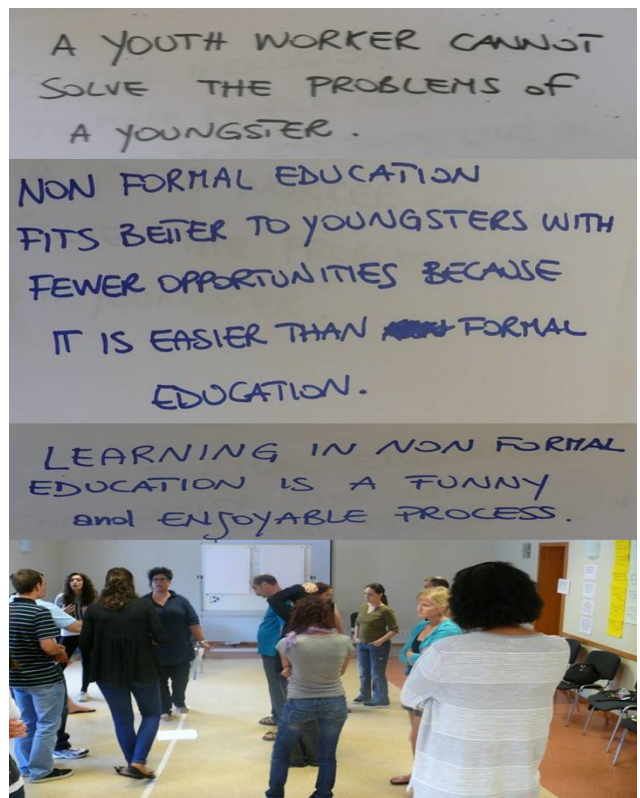 A YOUTH WORKER CANNOT
SOLVE THE PROBLEMS of
A YOUNGSTER.
NON FORMAL EDUCATION
FITS BETTER TO YOUNGSTERS WITH
FEWER OPPORTUNITIES BECAUSE
IT IS EASIER THAN FORMAL
EDUCATION.
LEARNING IN NON FORMAL
EDUCATION IS A FUNNY
and ENJOYABLE PROCESS.